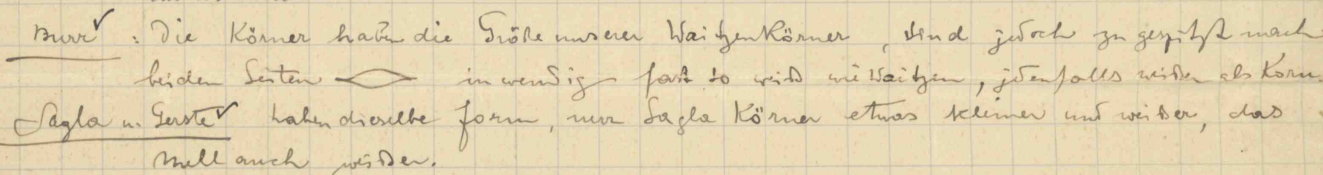 Murr : Die Körner haben die Größe unserer Waitzenkörner, sind jedoch zugespitzt nach
beiden Seiten inwendig fast so weiß wie Waitzen, jedenfalls weißer als Korn.
Sagla u. Gerste haben dieselbe Form, nur Sagla Körner etwas kleiner und weißer, das
Mell auch weißer.